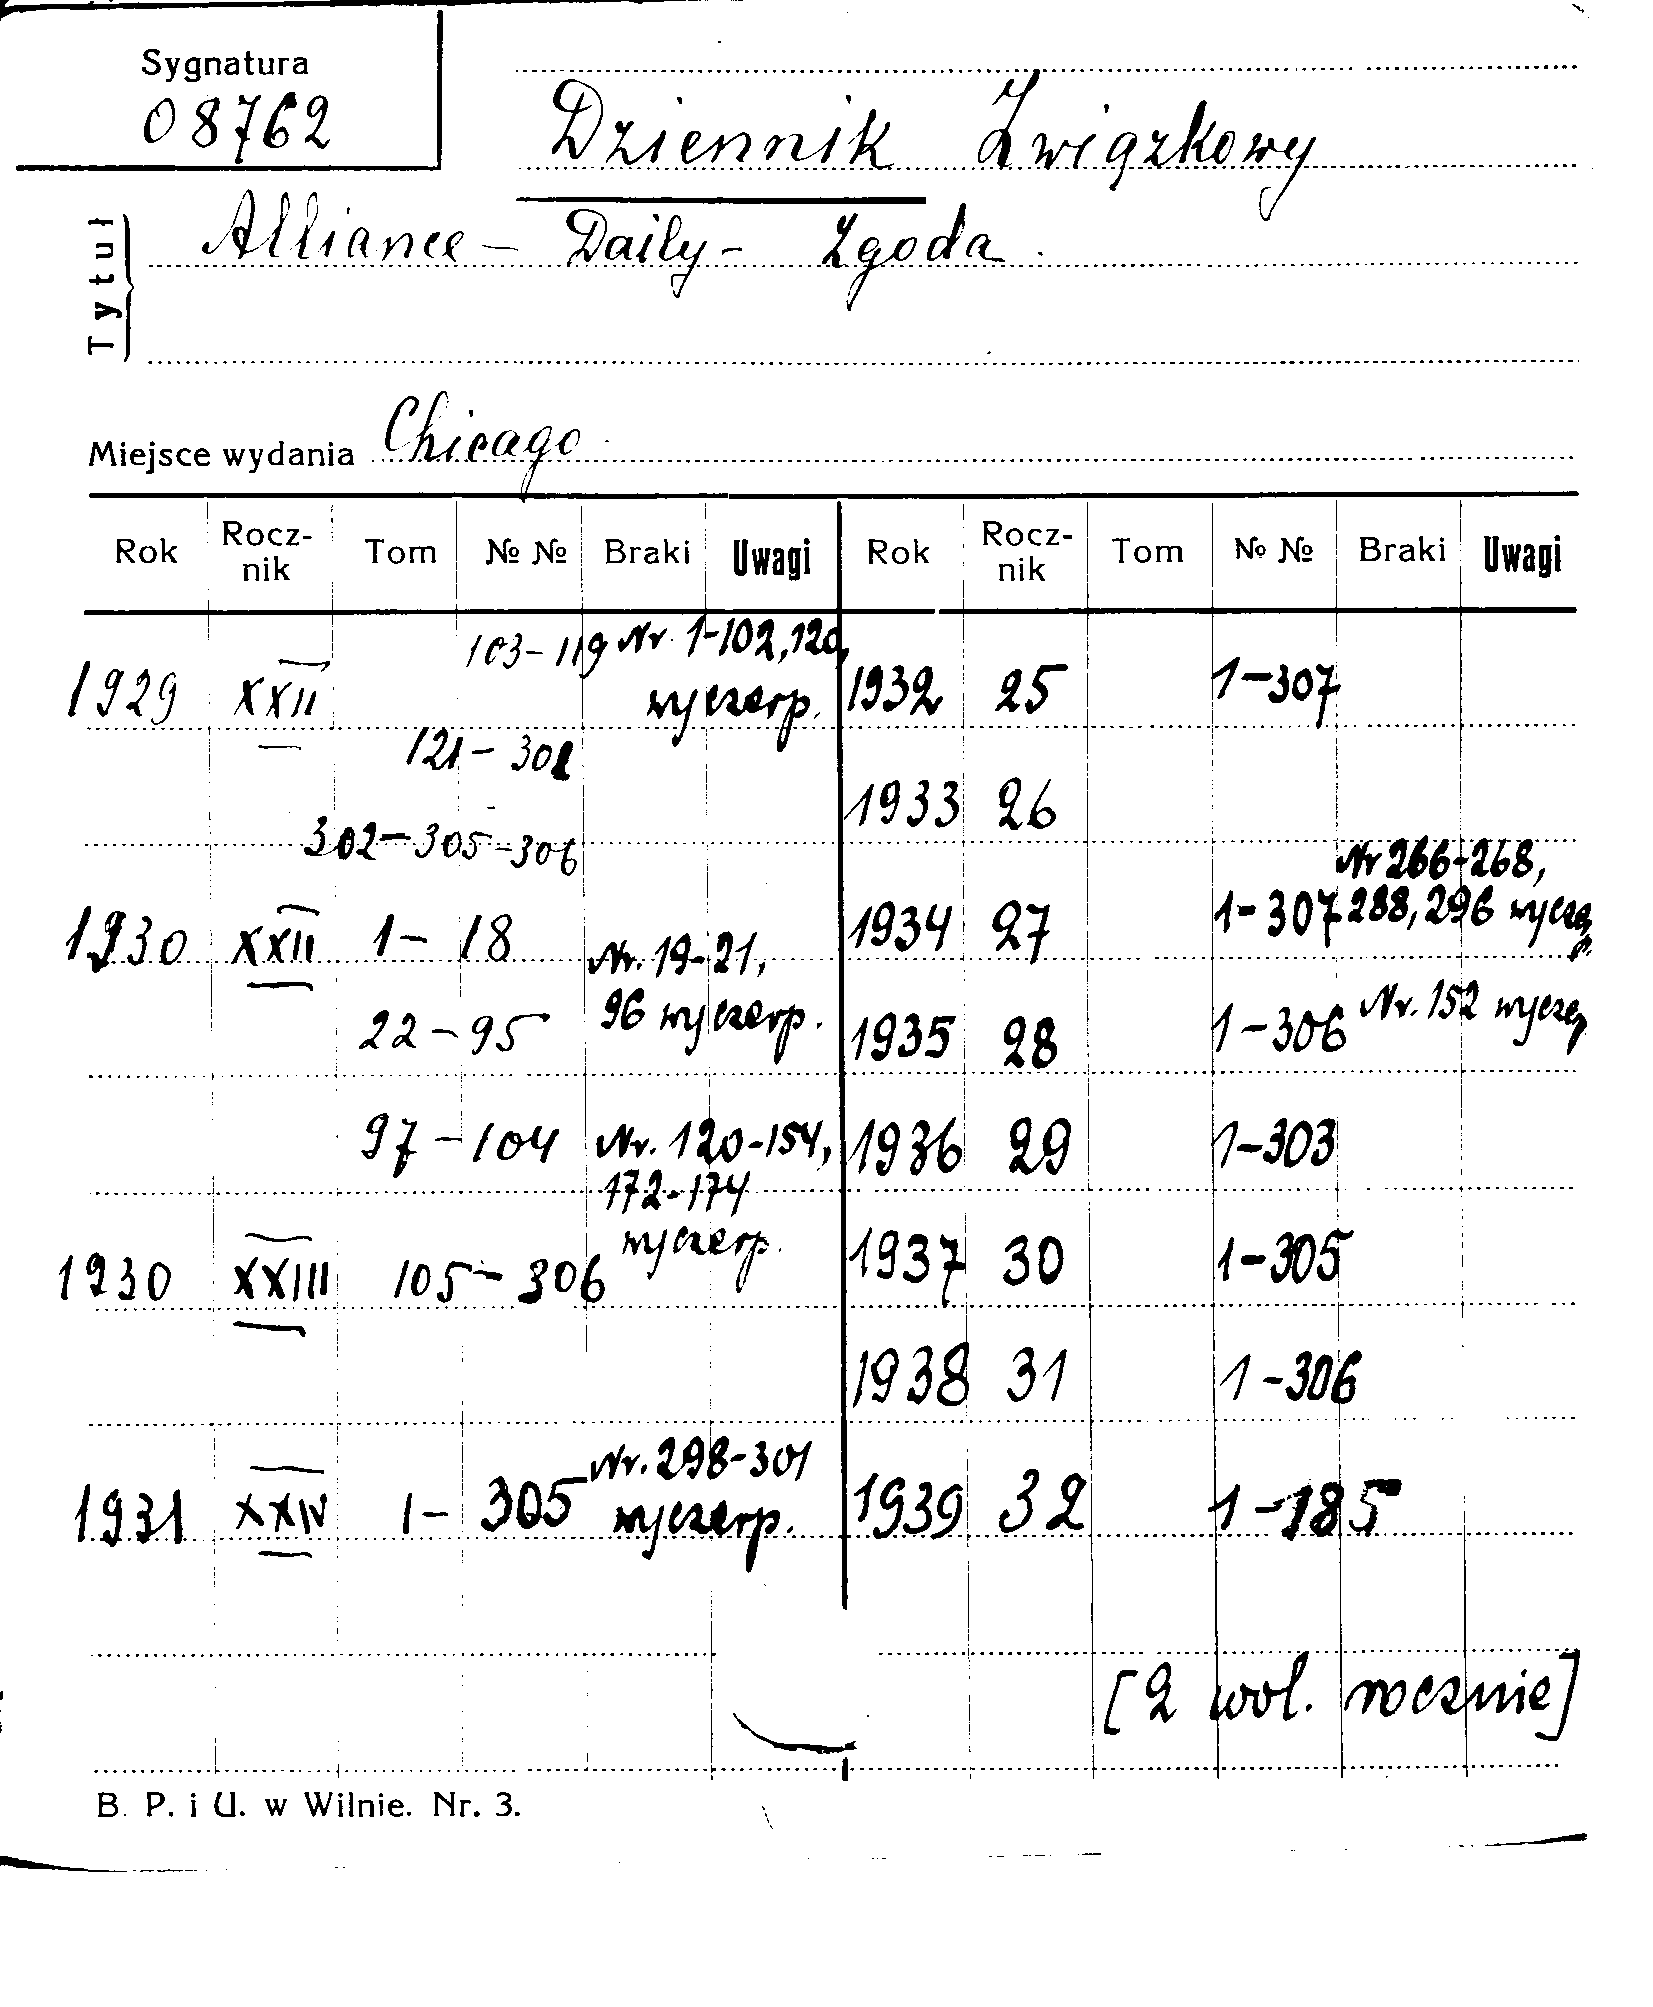 Sygnatura
08762
Dziennik Związkowy
Tytuł
Alliance - Daily - Zgoda.
Miejsce wydania Chicago
Rok Rocz-nik Tom № № Braki Uwagi Rok Rocz-nik Tom № № Braki Uwagi
103-119 Nr. 1-102, 120,
1929 XXII wyczerp. 1932 25 1-307
121-301
1933 26
302-305-306
Nr 266-268,
1930 XXII 1-18 1934 27 1-307 288, 296 wyczerp.
Nr. 19-21,
22-95 96 wyczerp. 1935 28 1-306 Nr. 152 wyczerp
97-104 Nr. 120-154, 1936 29 1-303
172-174
1930 XXIII 105-306 wyczerp. 1937 30 1-305
1938 31 1-306
Nr. 298-301
1931 XXIV 1-305 wyczerp. 1939 32 1-185
[2 wol. rocznie]
B. P. i U. w Wilnie. Nr. 3.